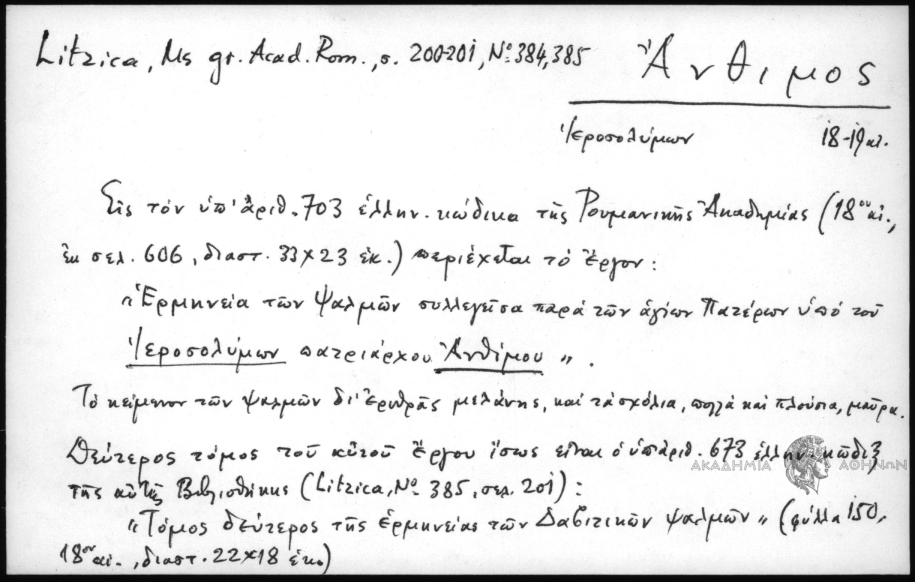 Litzica, Ms gr. Acad. Rom., σ. 200-201, Nº 384, 385
Ἄνθιμος
Ἱεροσολύμων 18-19 αἰ.
Εἰς τὸν ὑπ' ἀριθ. 703 ἑλλην. κώδικα τῆς Ρουμανικῆς Ἀκαδημίας (18ου αἰ.,
ἐκ σελ. 606, διαστ. 33×23 ἑκ.) περιέχεται τὸ ἔργον:
"Ἑρμηνεία τῶν Ψαλμῶν συλλεγεῖσα παρὰ τῶν ἁγίων Πατέρων ὑπὸ τοῦ
Ἱεροσολύμων πατριάρχου Ἀνθίμου".
Τὸ κείμενον τῶν ψαλμῶν δι' ἐρυθρᾶς μελάνης, καὶ τὰ σχόλια, πολλὰ καὶ πλούσια, μαῦρα.
Δεύτερος τόμος τοῦ αὐτοῦ ἔργου ἴσως εἶναι ὁ ὑπ' ἀριθ. 673 ἑλλην. κῶδιξ
τῆς αὐτῆς Βιβλιοθήκης (Litzica, Nº 385, σελ. 201):
"Τόμος δεύτερος τῆς ἑρμηνείας τῶν Δαβιτικῶν ψαλμῶν" (φύλλα 150,
18ου αἰ., διαστ. 22×18 ἑκ.)
ΑΚΑΔΗΜΙΑ ΑΘΗΝΩΝ